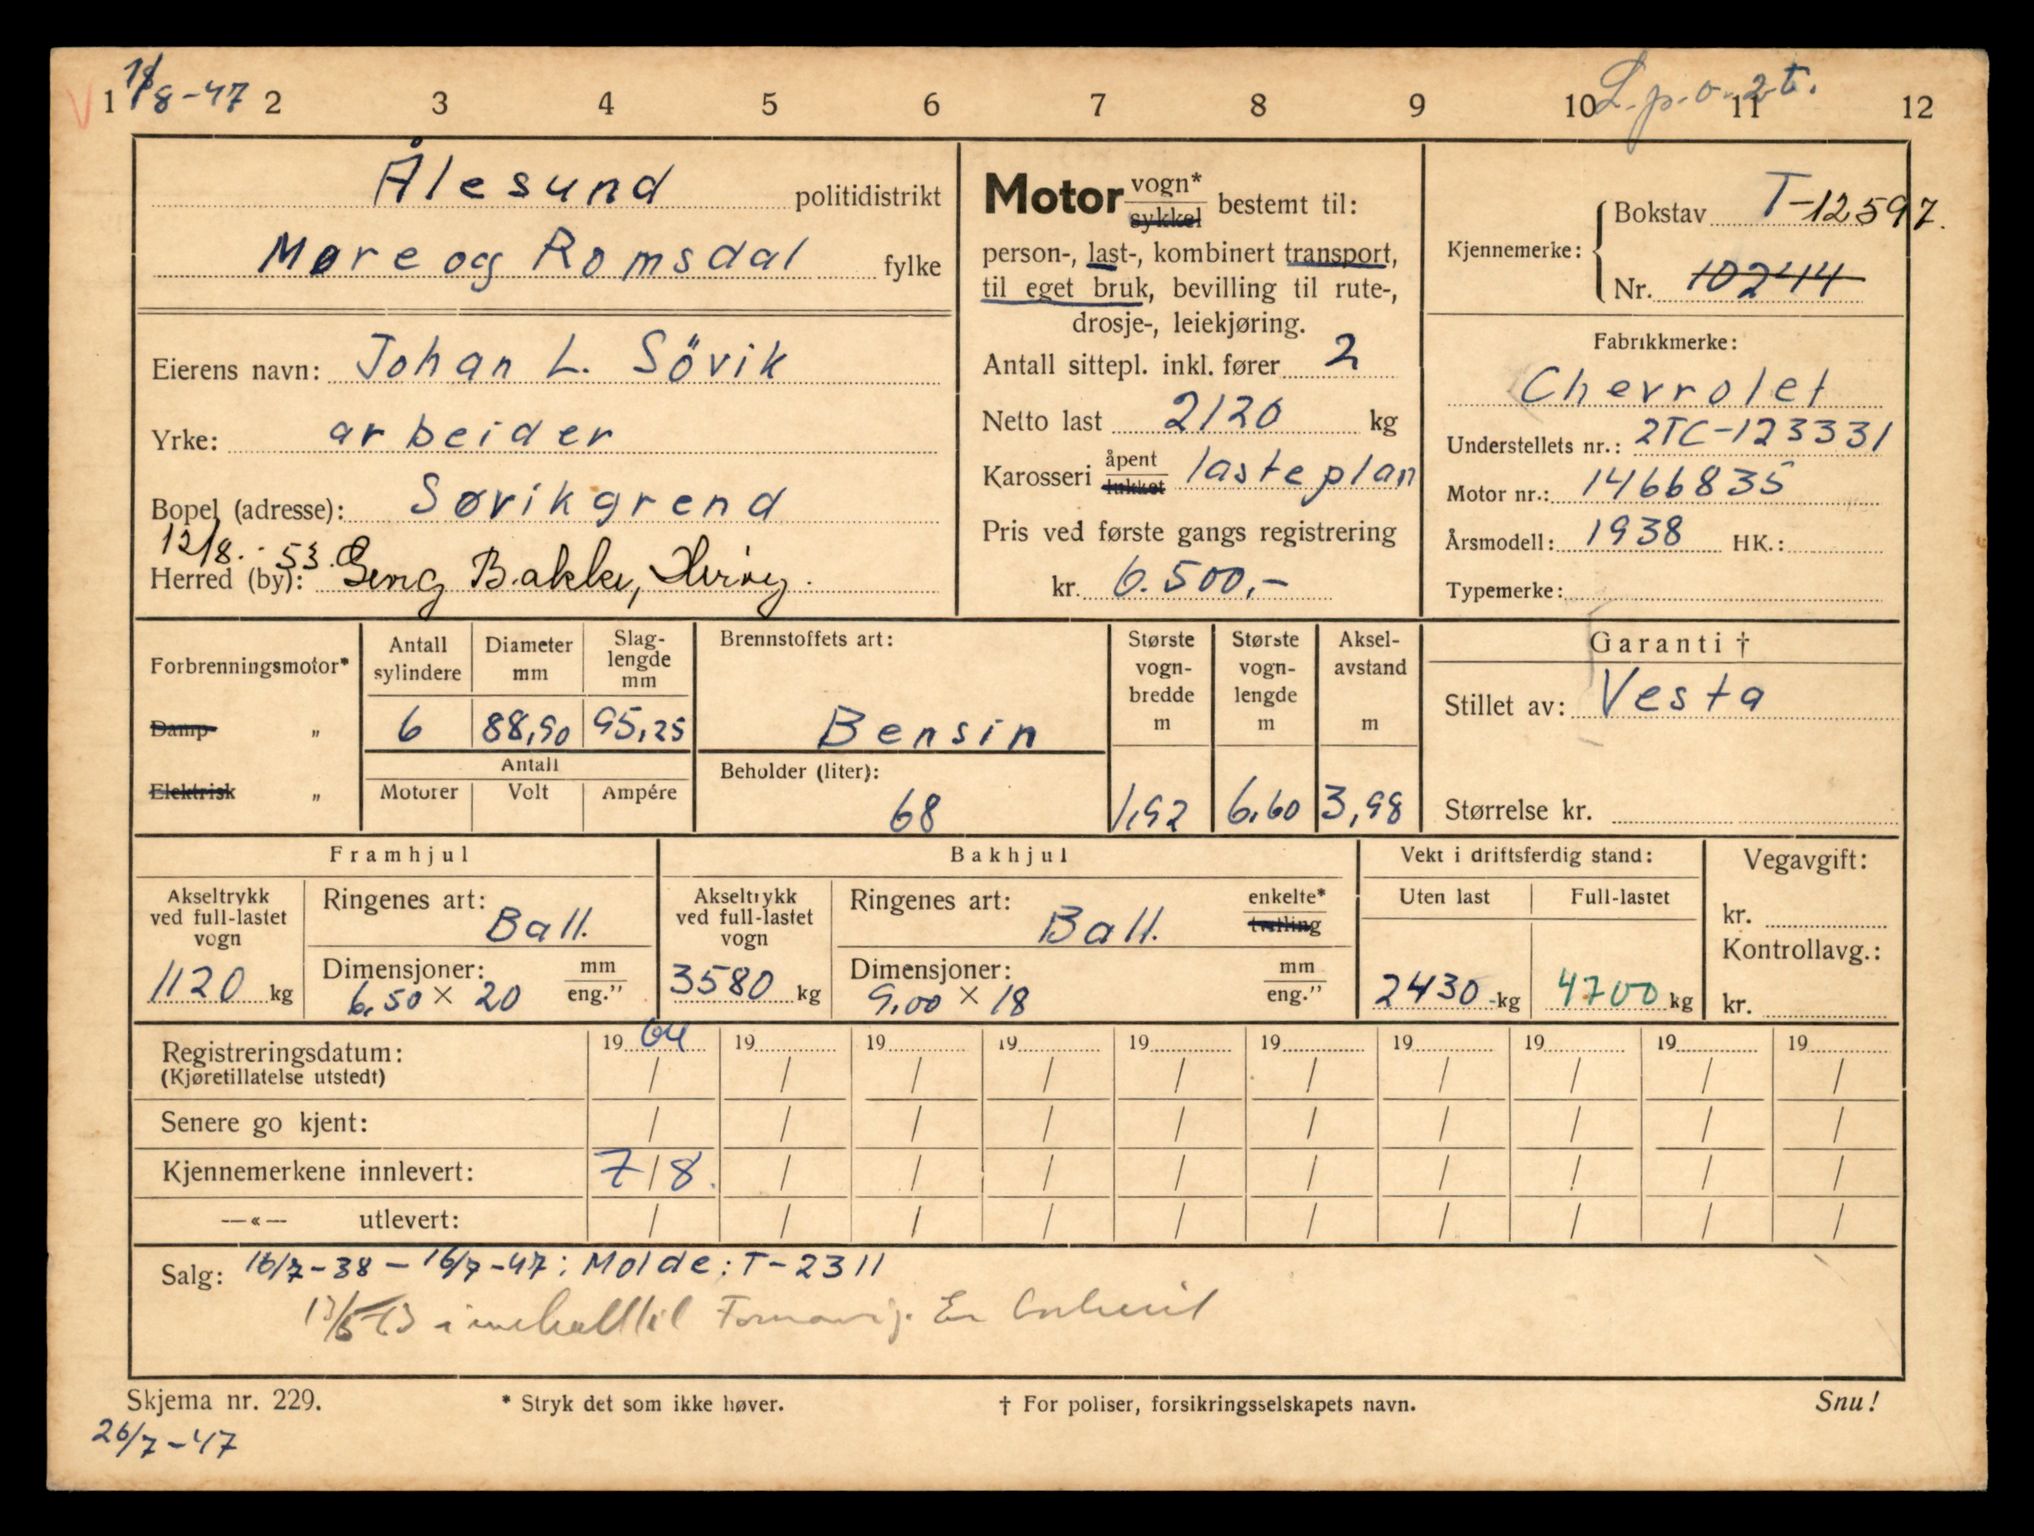 1 2 3 4 5 6 7 8 9 10 11 12
1/8-47
L.p.o.2t.
Ålesund politidistrikt
Møre og Romsdal fylke
Eierens navn: Johan L. Sövik
Yrke: arbeider
Bopel (adresse): Søvikgrend
12/8.-53.
Herred (by): Geng Bakke,
Motor vogn* sykkel bestemt til:
person-, last-, kombinert transport,
til eget bruk, bevilling til rute-,
drosje-, leiekjøring.
Antall sittepl. inkl. fører 2
Netto last 2120 kg
Karosseri åpent lukket lasteplan
Pris ved første gangs registrering
kr. 6.500,-
Kjennemerke: Bokstav T-12597.
Nr. 10244
Fabrikkmerke:
Chevrolet
Understellets nr.: 2TC-123331
Motor nr.: 1466835
Årsmodell: 1938 HK.:
Typemerke:
Forbrenningsmotor*
Damp- „
Elektrisk „
Antall sylindere
6
Diameter mm
88,90
Slag-lengde mm
95,25
Antall
Motorer Volt Ampére
Brennstoffets art:
Bensin
Beholder (liter):
68
Største vogn-bredde m
1,92
Største vogn-lengde m
6,60
Aksel-avstand m
3,98
Garanti †
Stillet av: Vesta
Størrelse kr.
Framhjul
Akseltrykk ved full-lastet vogn
1120 kg
Ringenes art: Ball.
Dimensjoner: mm
6,50 × 20 eng.”
Bakhjul
Akseltrykk ved full-lastet vogn
3580 kg
Ringenes art: Ball. enkelte* tvilling
Dimensjoner: mm
9,00 × 18 eng.”
Vekt i driftsferdig stand:
Uten last Full-lastet
2430 kg 4700 kg
Vegavgift:
kr.
Kontrollavg.:
kr.
Registreringsdatum: 1964 19 19 19 19 19 19 19 19 19
(Kjøretillatelse utstedt) / / / / / / / / / /
Senere go kjent: / / / / / / / / / /
Kjennemerkene innlevert: 7/8. / / / / / / / / /
—«— utlevert: / / / / / / / / / /
Salg: 16/7-38 - 16/7-47: Molde: T-2311
til
Skjema nr. 229. * Stryk det som ikke høver. † For poliser, forsikringsselskapets navn. Snu!
26/7-47